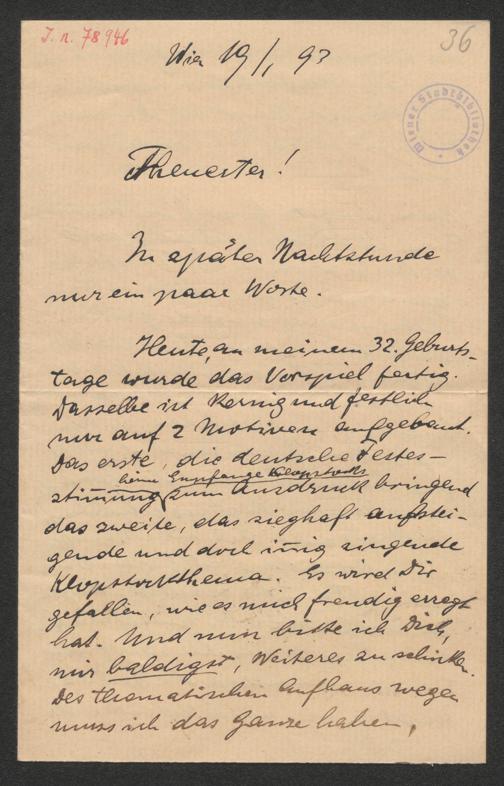 J. n. 78946
36
Wiener Stadtbibliothek
Wien 19/1 93
Theuerster!
In später Nachtstunde
nur ein paar Worte.
Heute, an meinem 32. Geburts-
tage wurde das Vorspiel fertig.
Dasselbe ist kernig und festlich
nur auf 2 Motiven aufgebaut.
Das erste, die deutsche Festes-
beim Empfange Klopstocks
stim̄ung zum Ausdruck bringend
das zweite, das sieghaft aufstei-
gende und doch in̄ig singende
Klopstockthema. Es wird Dir
gefallen, wie es mich freudig erregt
hat. Und nun bitte ich Dich,
mir baldigst, Weiteres zu schicken.
Des thematischen Aufbaus wegen
muss ich das Ganze haben,